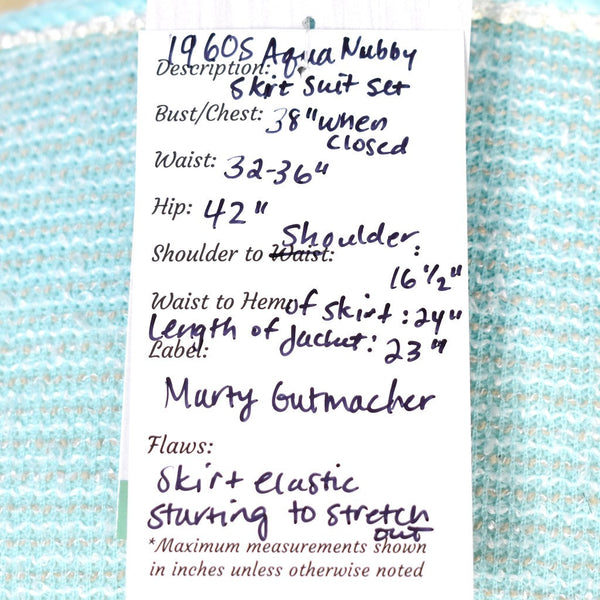 1960s Aqua Nubby
Description:
skirt suit set
Bust/Chest: 38" when
closed
Waist: 32-36"
Hip: 42"
Shoulder to Waist: Shoulder:
16 1/2"
Waist to Hem of skirt: 24"
Length of Jacket: 23"
Label:
Marty Gutmacher
Flaws:
Skirt elastic
starting to stretch
out
*Maximum measurements shown
in inches unless otherwise noted